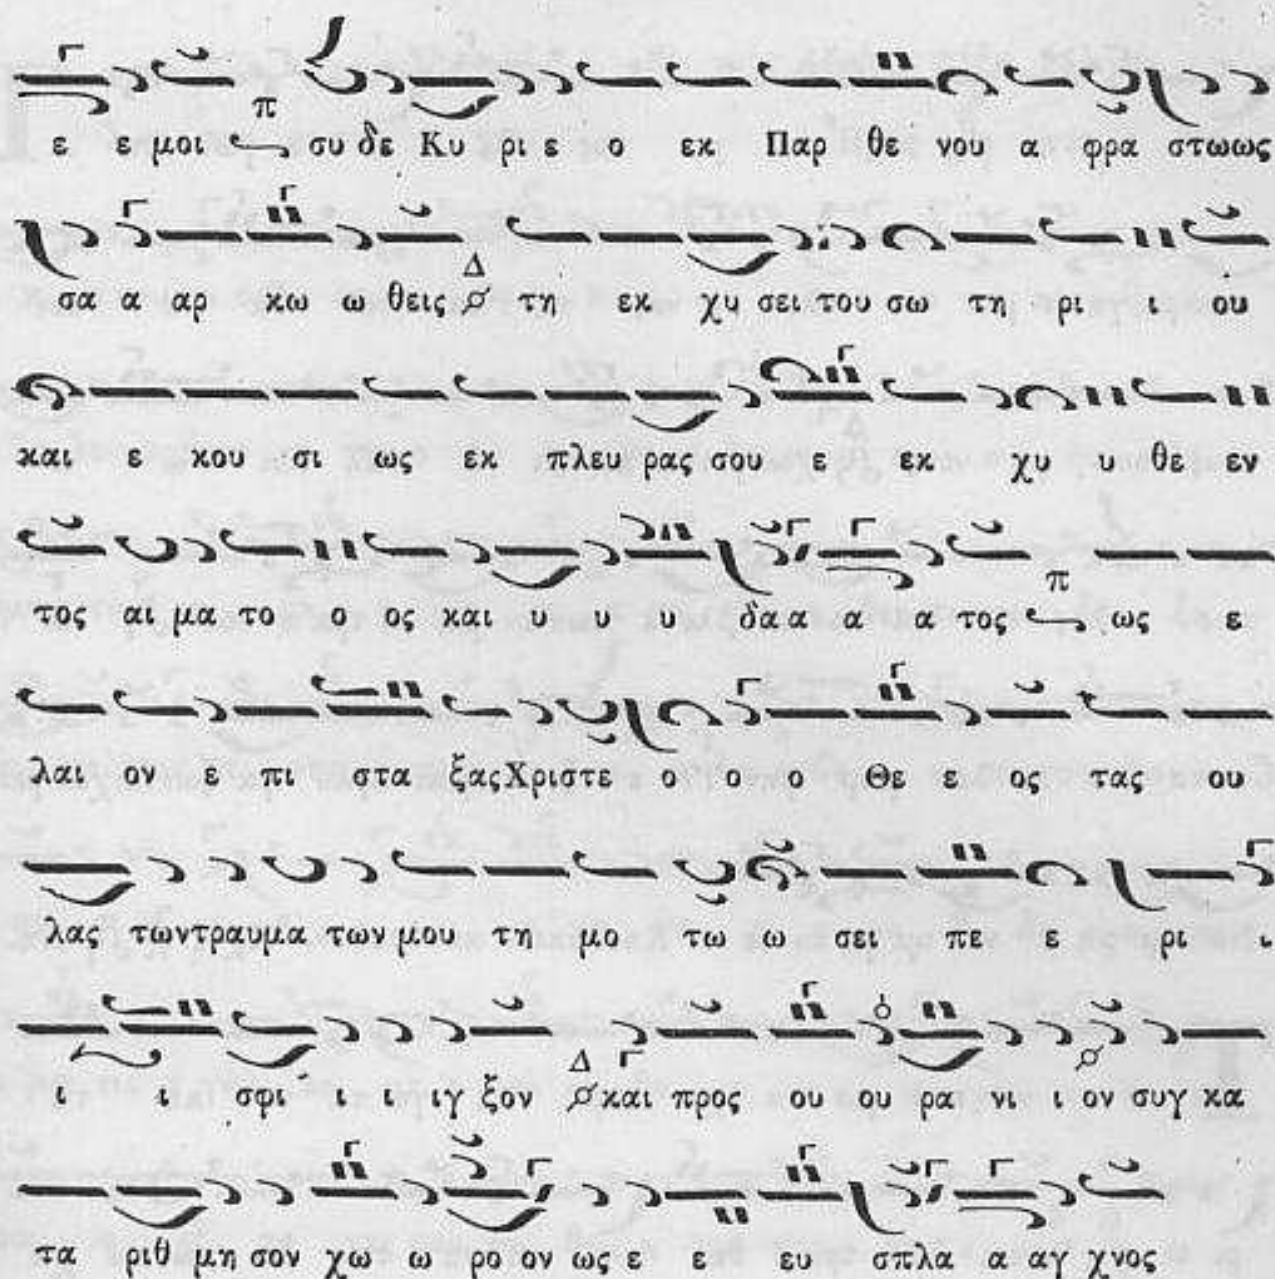 ε ε μοι π συ δε Κυ ρι ε ο εκ Παρ θε νου α φρα στωως
σα α αρ κω ω θεις Δ τη εκ χυ σει του σω τη ρι ι ου
και ε κου σι ως εκ πλευ ρας σου ε εκ χυ υ θε εν
τος αι μα το ο ος και υ υ υ δα α α α τος π ως ε
λαι ον ε πι στα ξας Χριστε ο ο ο Θε ε ος τας ου
λας των τραυμα των μου τη μο τω ω σει πε ε ρι ι
ι ι σφι ι ι ιγ ξον Δ και προς ου ου ρα νι ι ον συγ κα
τα ριθ μη σον χω ω ρο ον ως ε ε ευ σπλα α αγ χνος